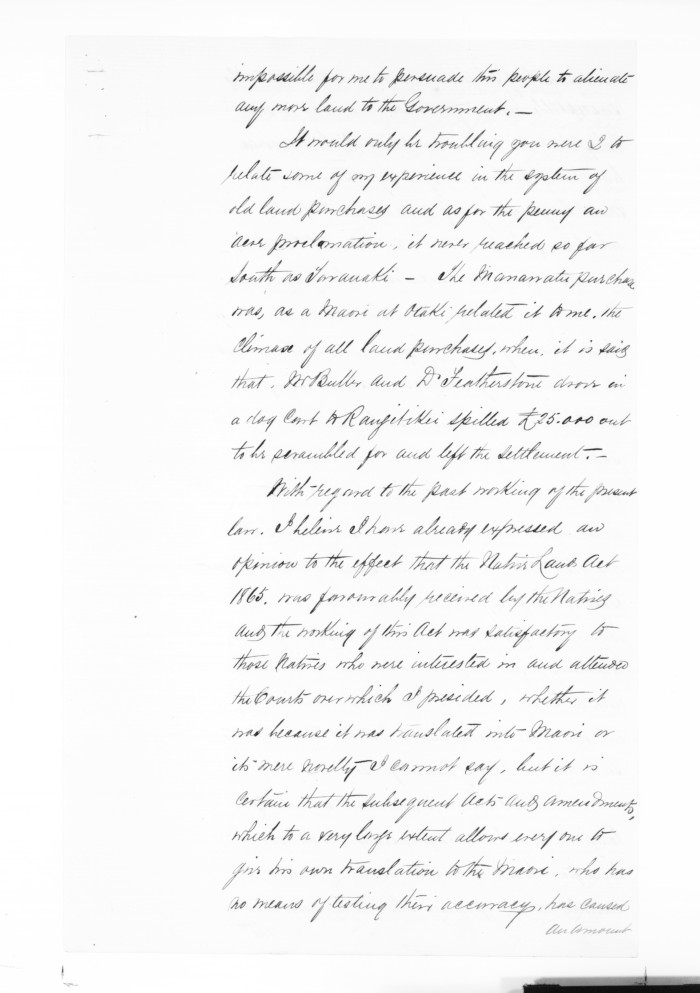 impossible for me to persuade his people to alienate
any more land to the Government. —
It would only be troubling you were I to
relate some of my experience in the system of
old land purchases and as for the penny an
acre proclamation, it never reached so far
South as Taranaki — The Manawatu purchase
was, as a Maori at Otaki related it to me, the
climax of all land purchases, when, it is said
that, Mr Buller and Dr Featherstone drove in
a dog Cart to Rangitikei spilled £25.000 out
to be scrambled for and left the settlement. —
With regard to the past working of the present
law. I believe I have already expressed an
opinion to the effect that the Native Lands Act
1865. was favourably received by the Natives
and the working of this Act was satisfactory to
those Natives who were interested in and attended
the Courts over which I presided, whether it
was because it was translated into Maori or
its mere novelty I cannot say, but it is
certain that the subsequent Acts and amendments,
which to a very large extent allows every one to
give his own translation to the Maori, who has
no means of testing their accuracy, has caused
an amount